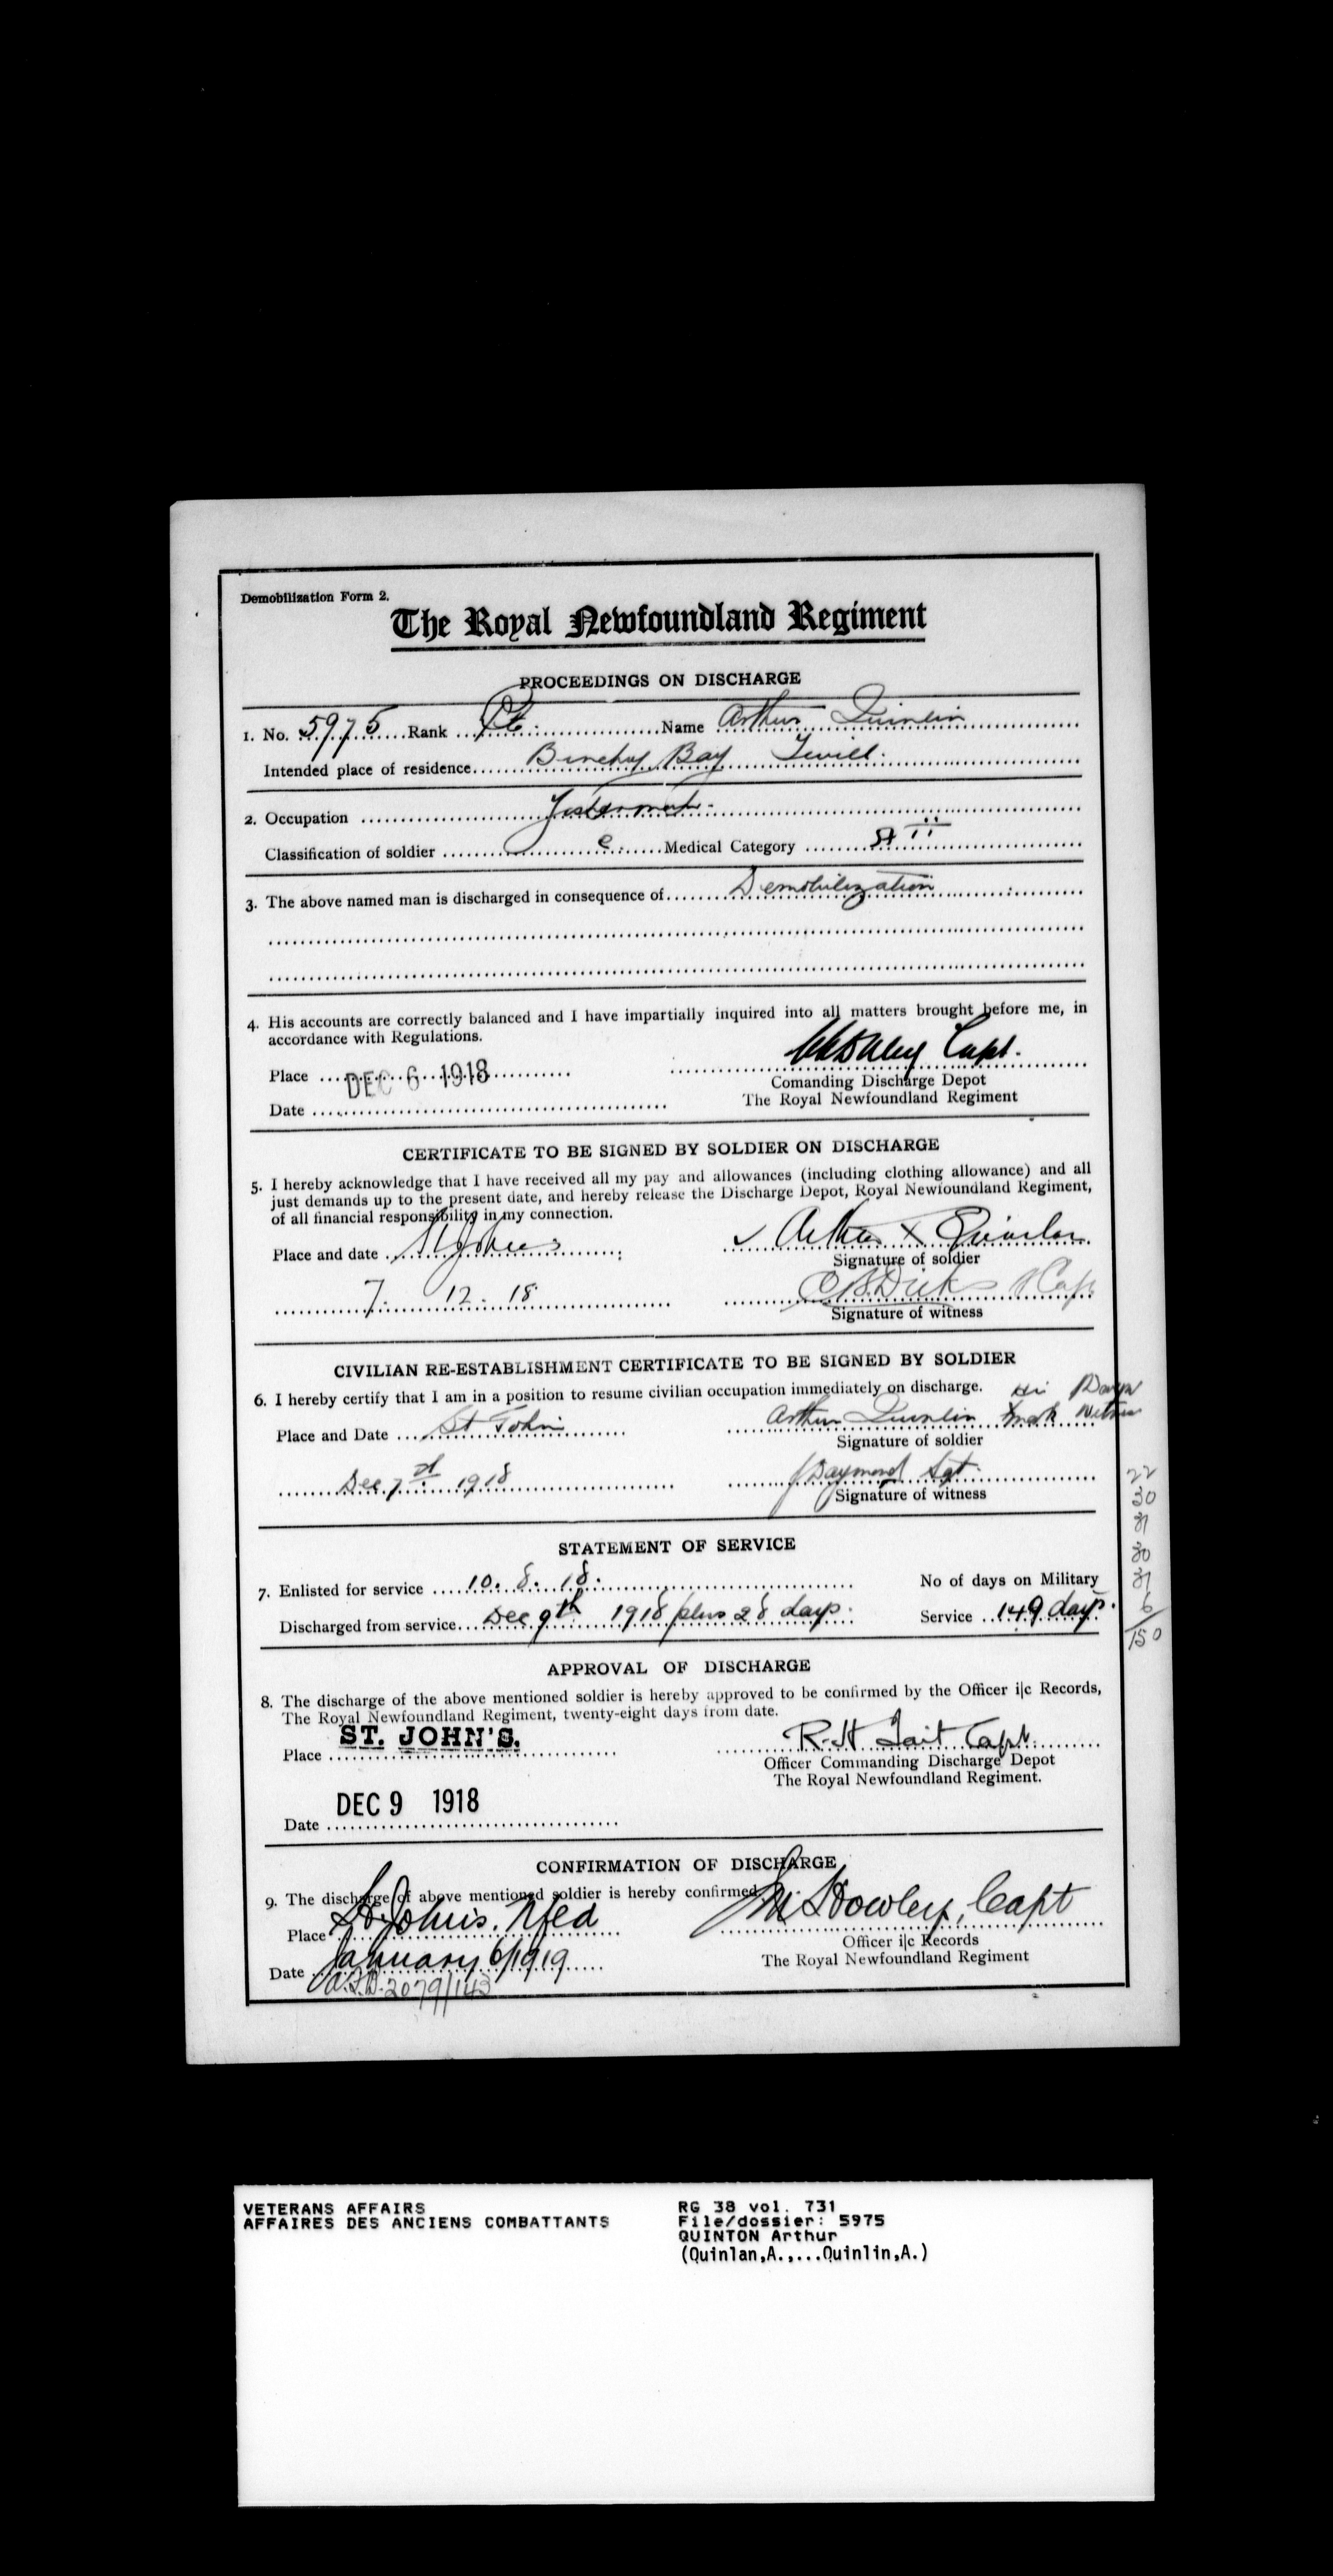 Demobilization Form 2.
The Royal Newfoundland Regiment
PROCEEDINGS ON DISCHARGE
1. No. 5975 Rank Pte. Name Arthur Quinlin
Intended place of residence Bay
2. Occupation
Classification of soldier e Medical Category A II
3. The above named man is discharged in consequence of Demobilization
4. His accounts are correctly balanced and I have impartially inquired into all matters brought before me, in
accordance with Regulations.
Capt.
Place DEC 6 1918
Comanding Discharge Depot
Date
The Royal Newfoundland Regiment
CERTIFICATE TO BE SIGNED BY SOLDIER ON DISCHARGE
5. I hereby acknowledge that I have received all my pay and allowances (including clothing allowance) and all
just demands up to the present date, and hereby release the Discharge Depot, Royal Newfoundland Regiment,
of all financial responsibility in my connection.
Place and date St Johns Arthur X Quinlan
Signature of soldier
7. 12. 18 C B Dicks Capt
Signature of witness
CIVILIAN RE-ESTABLISHMENT CERTIFICATE TO BE SIGNED BY SOLDIER
6. I hereby certify that I am in a position to resume civilian occupation immediately on discharge.
Place and Date St Johns Arthur Quinlin X mark Witness
Signature of soldier
Dec 7 1918 Sgt.
Signature of witness
22
30
31
30
31
6
150
STATEMENT OF SERVICE
7. Enlisted for service 10. 8. 18. No of days on Military
Discharged from service Dec 9th 1918 plus 28 days. Service 149 days.
APPROVAL OF DISCHARGE
8. The discharge of the above mentioned soldier is hereby approved to be confirmed by the Officer i|c Records,
The Royal Newfoundland Regiment, twenty-eight days from date.
Place ST. JOHN'S. R. H. Tait Capt.
Officer Commanding Discharge Depot
The Royal Newfoundland Regiment.
Date DEC 9 1918
CONFIRMATION OF DISCHARGE
9. The discharge of above mentioned soldier is hereby confirmed.
Place St. John's. Nfld Howley, Capt
Officer i|c Records
Date January 6/1919
The Royal Newfoundland Regiment
2079/143
VETERANS AFFAIRS
AFFAIRES DES ANCIENS COMBATTANTS
RG 38 vol. 731
File/dossier: 5975
QUINTON Arthur
(Quinlan,A.,...Quinlin,A.)